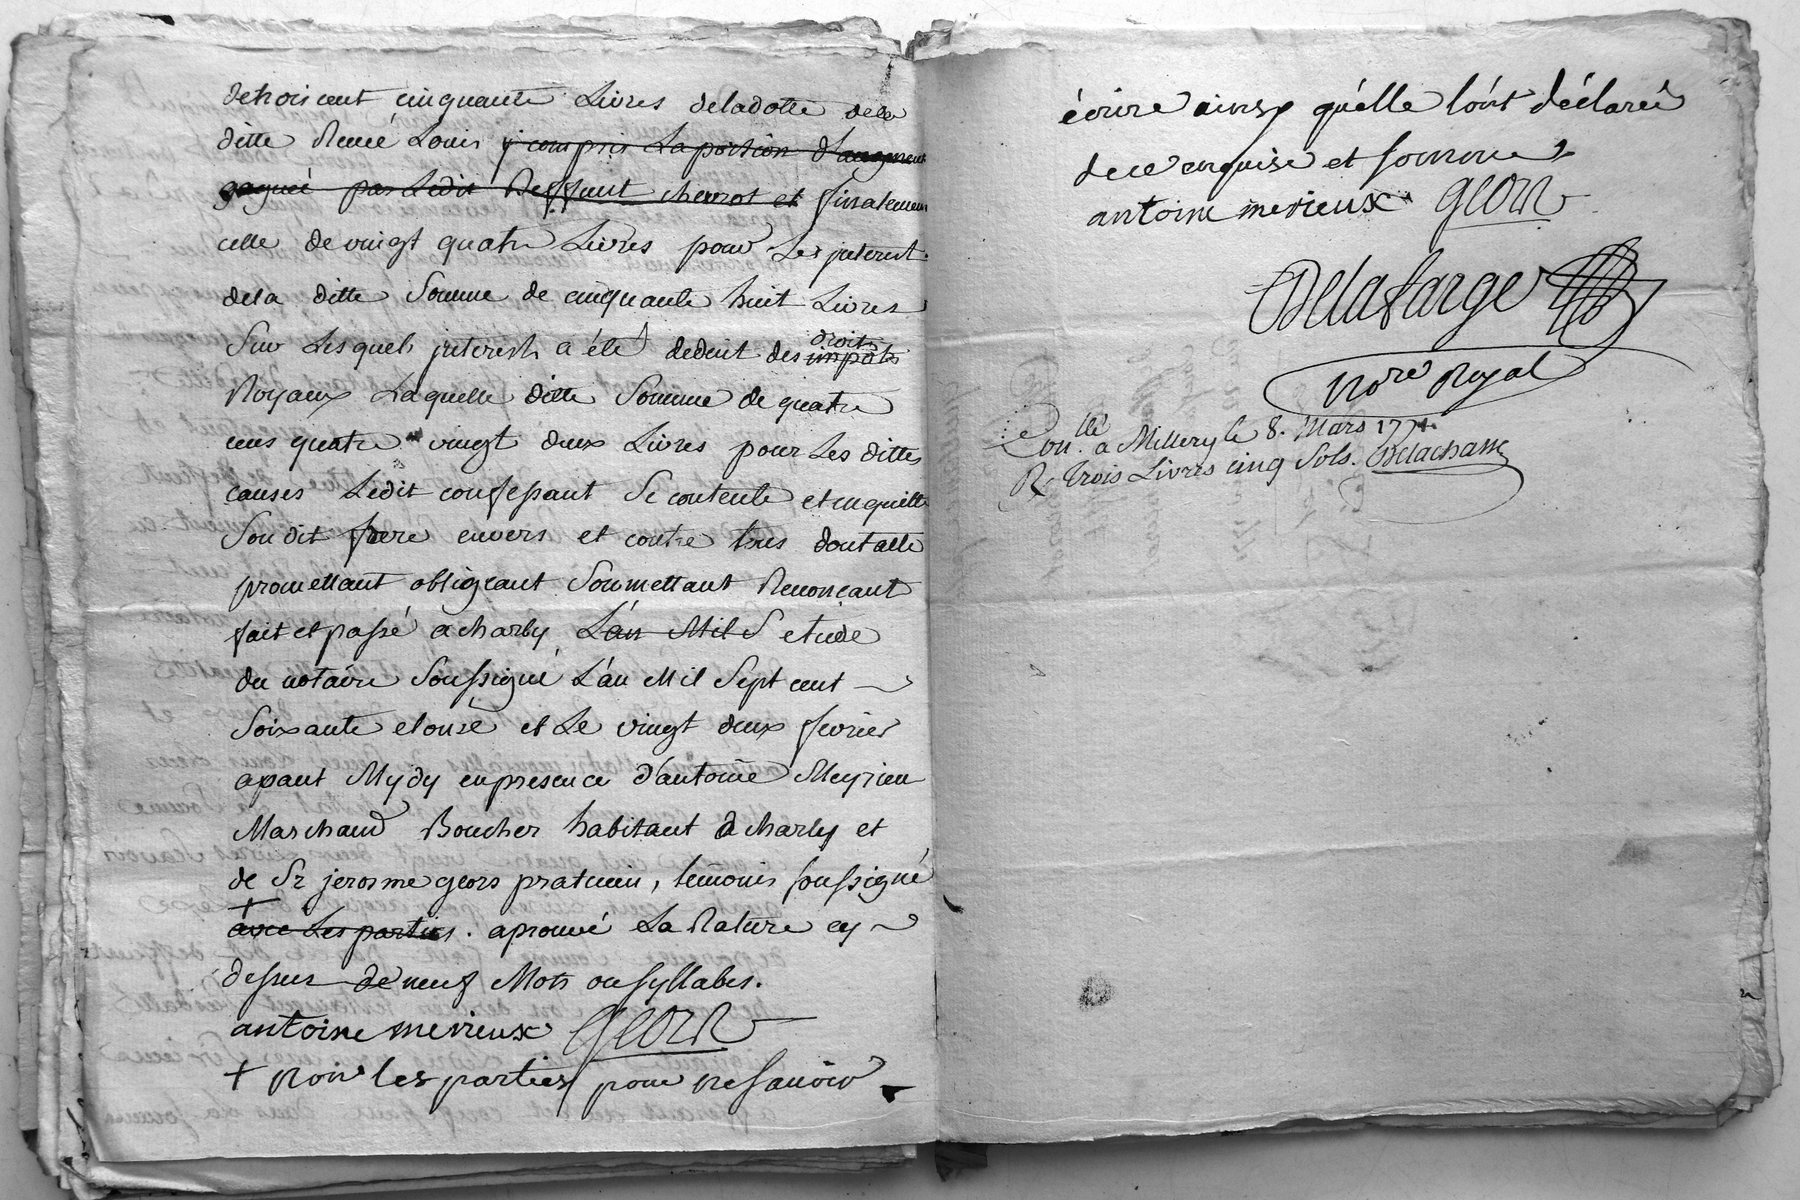 detroiscent cinquante Livres deladotte dela
ditte Reneé Louis y compris Laportion d'augment
gagneé par Ledit Deffunt cherrot et finalement
celle de vingt quatre Livres pour Les jnterest
dela ditte Somme de cinquante huit Livres
Sur Lesquels jnterests a été deduit des impots droits
Royaux Laquelle ditte Somme de quatre
cens quatre vingt deux Livres pour Les dittes
causes Ledit confessant Se contente et enquitte
Son dit frere envers et contre tous dont acte
promettant obligeant Soumettant Renonçant
fait et passé a charly L'an Mil S etude
du notaire Soussigné L'an Mil Sept cent
Soixante et onze et Le vingt deux fevrier
avant Mydy en presence d'antoine Meyrieu
Marchand Boucher habitant a charly et
de Sr jerosme geors praticien, temoins soussigné
+ avec Les parties. aprouvé La Rature cy
dessus de neuf Mots ou syllabes.
antoine merieux Georr
+ non les parties pour ne savoir
écrire ainsy qu'elle lont déclareé
de ce enquise et sommeé
antoine merieux Georr
Delafarge
No.re Royal
Con.lle a Millery le 8. Mars 1771.
R. trois Livres cinq Sols. Delachasse